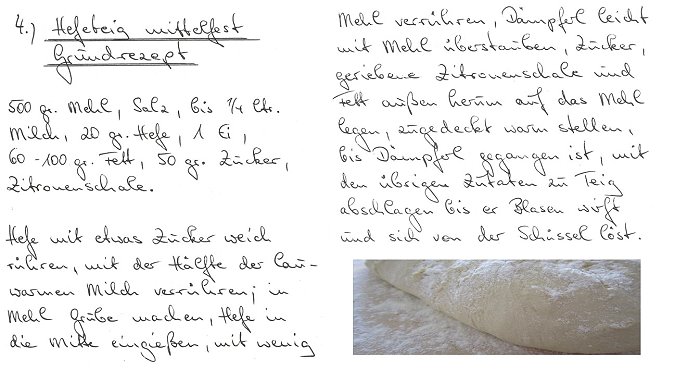 4.) Hefeteig mittelfest
Grundrezept
500 gr. Mehl, Salz, bis 1/4 ltr.
Milch, 20 gr. Hefe, 1 Ei,
60-100 gr. Fett, 50 gr. Zucker,
Zitronenschale.
Hefe mit etwas Zucker weich
rühren, mit der Hälfte der lau-
warmen Milch verrühren; in
Mehl Grube machen, Hefe in
die Mitte eingießen, mit wenig
Mehl verrühren, Dämpferl leicht
mit Mehl überstauben, Zucker,
geriebene Zitronenschale und
Fett außen herum auf das Mehl
legen, zugedeckt warm stellen,
bis Dämpferl gegangen ist, mit
den übrigen Zutaten zu Teig
abschlagen bis er Blasen wirft
und sich von der Schüssel löst.